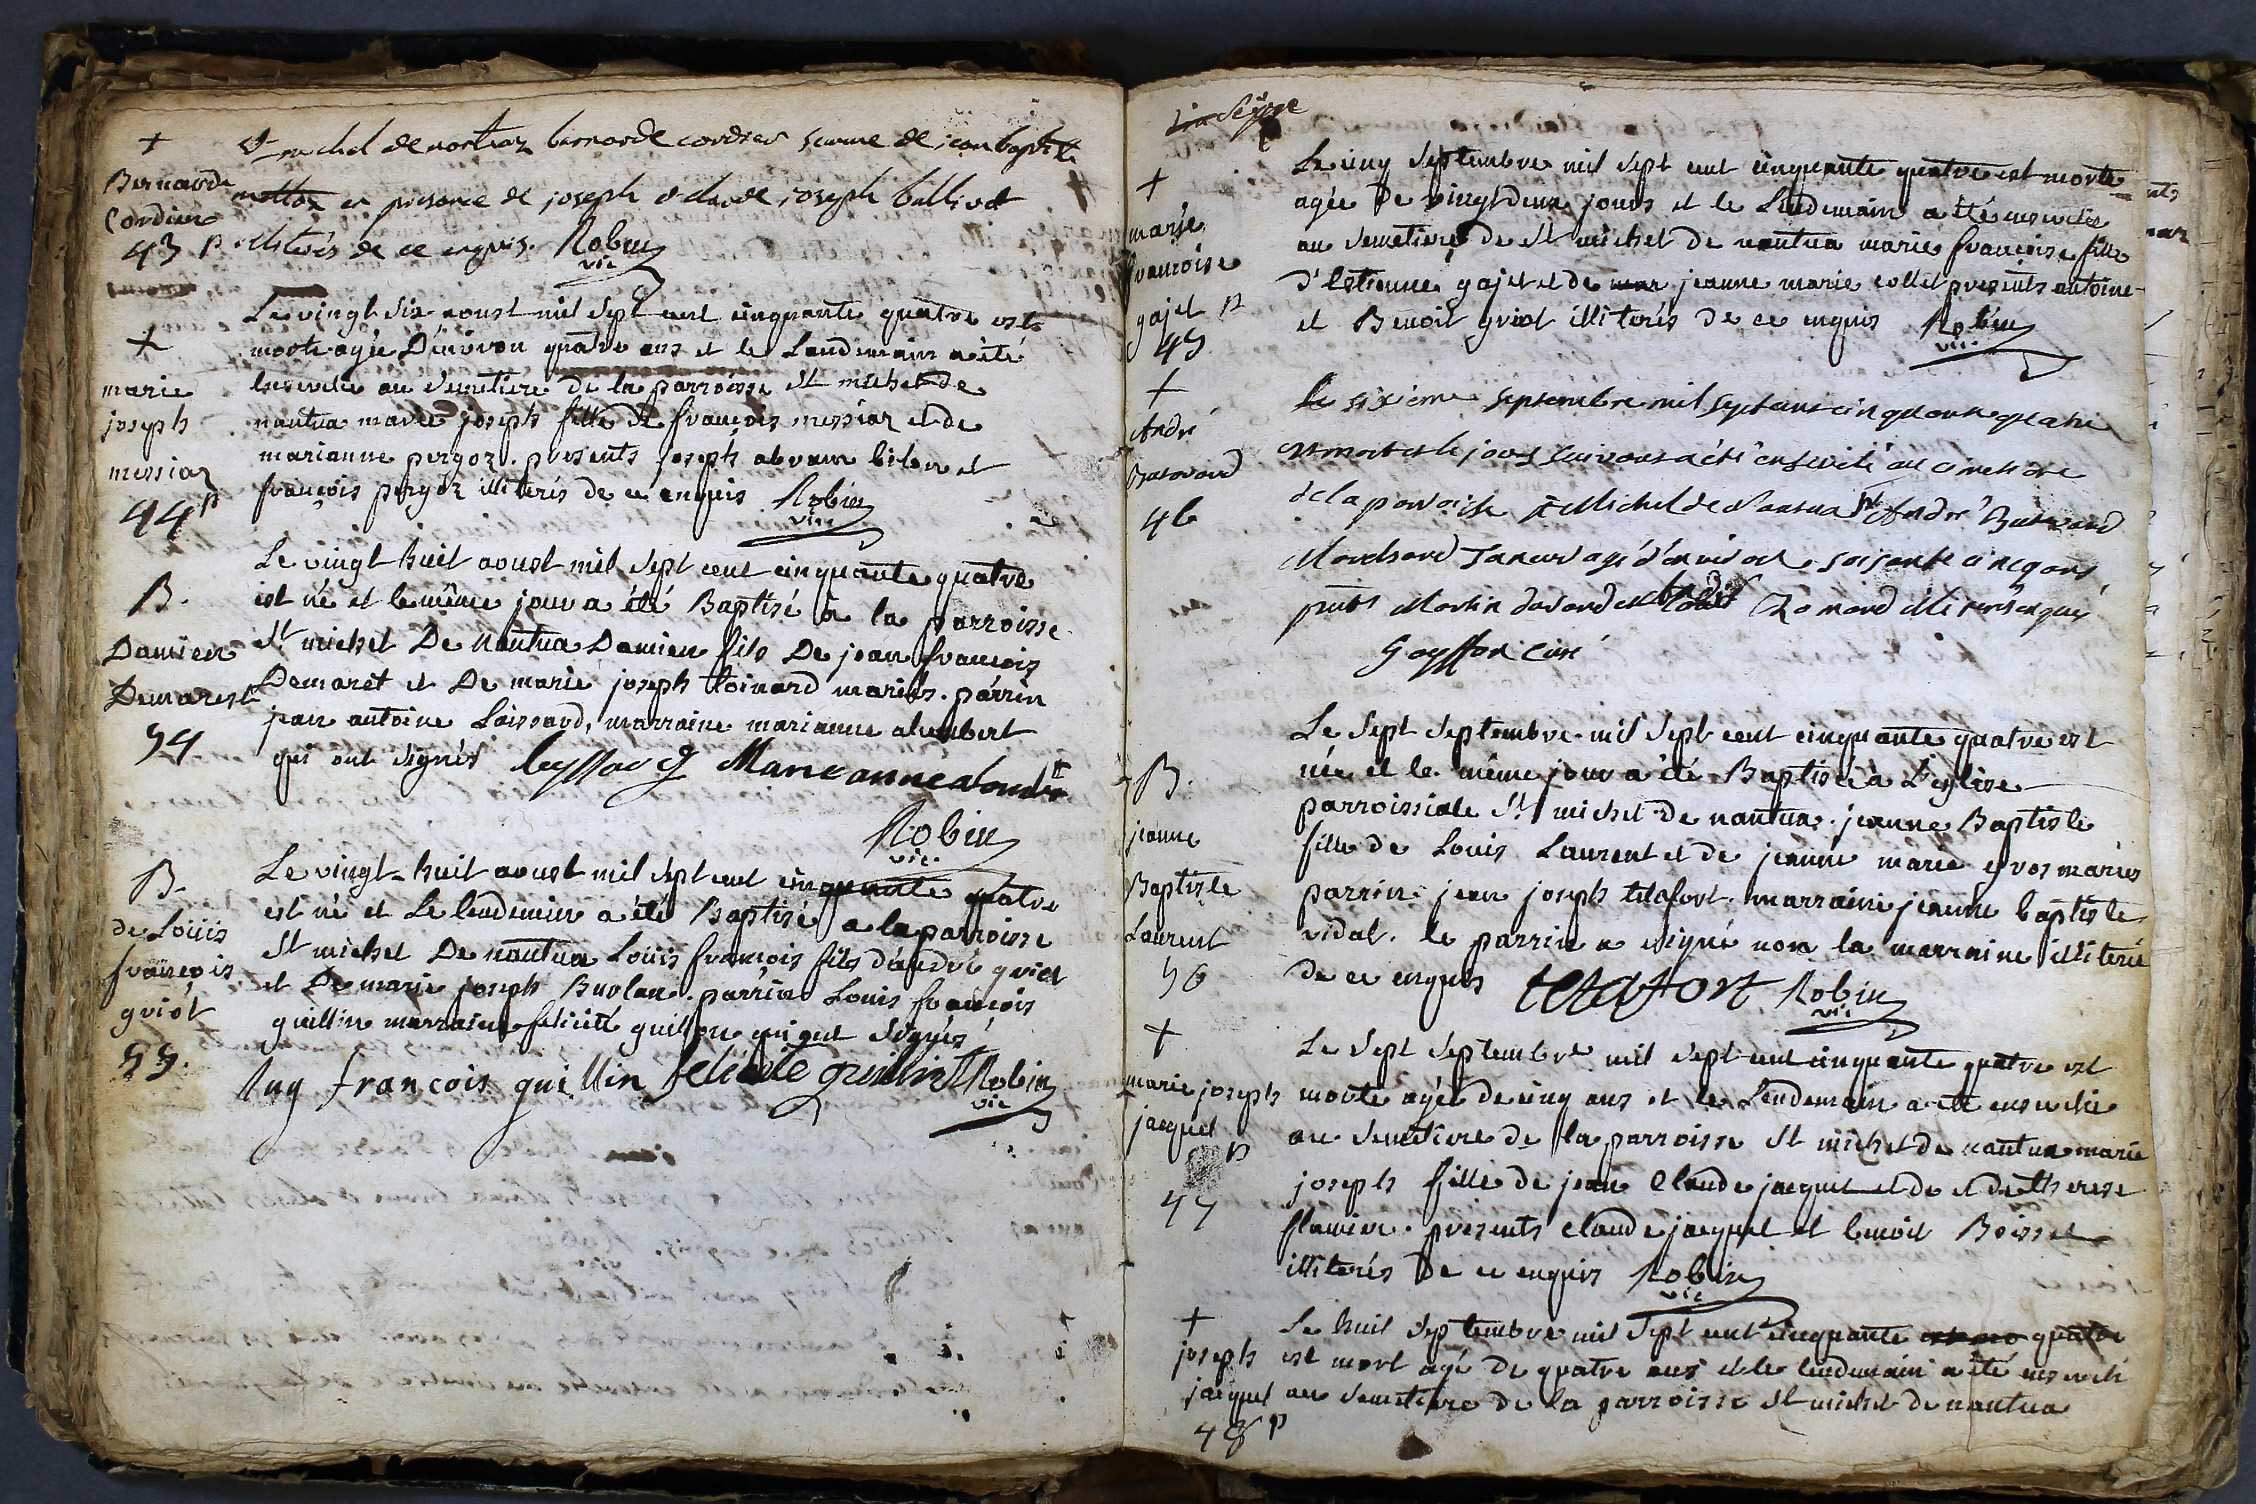 +
Bernarde
Cordier
43 p
St michel de nantua bernarde cordier femme de jean baptiste
mottaz en presence de joseph et claude joseph ballivet
illiterés de ce enquis. Robin
vic
+
marie
joseph
messiaz
44 p
Le vingt six aoust mil sept cent cinquante quatre est
morte agée D'environ quatre ans et le Landemain a été
ensevelie au semetiere de la parroisse St michel de
nantua marie joseph fille de françois messiaz et de
marianne pergoz. presents joseph abram bilen et
françois pergoz illiterés de ce enquis Robin
vic
B.
Damien
Demarest
54
Le vingt huit aoust mil sept cent cinquante quatre
est né et le même jour a été Baptisé à la parroisse
St michel De Nantua Damien fils De jean françois
Demaret et De marie joseph Goinard mariés. parrin
jean antoine Laissard, marraine marianne alumbert
qui ont signés Leyssard Marie anne alombert
Robin
vic.
B.
de Loüis
françois
griot
55.
Le vingt-huit aoust mil sept cent cinquante quatre
est né et Le lendemain a été Baptisé a la parroisse
St michel De nantua Loüis françois fils d'andré griot
et De marie joseph Burlan. parrin Louis françois
guillin marraine felicité guillon qui ont signés
Luy françois guillin felicité guillin Robin
vic
+
marie
françoise
gajet p
45
Le cinq septembre mil sept cent cinquante quatre est morte
agée De vingt deux jours et le Lendemain a été ensevelie
au semetiere de St michel de nantua marie françoise fille
d'Estienne gajet et de mar jeanne marie collet presents antoine
et Benoit griot illiterés de ce enquis Robin
vic.
+
André
Butavand
46
le sixieme septembre mil sept cent cinquante quatre
est mort et le jour suivant a été enseveli au cimetiere
de la parroisse St Michel de Nantua Sr André Butavand
Marchand Taneur agé d'environ soisante cinq ans
pnts Martin davard et Romand illiterés enquis
Goyffon Curé
B.
jeanne
Baptiste
Laurent
56
Le sept septembre mil sept cent cinquante quatre est
née et le même jour a été Baptisée à L'eglise
parroissiale St michel de nantua. jeanne Baptiste
fille de Louis Laurent et de jeanne marie gros mariés
parrin jean joseph tetafort. marraine jeanne baptiste
vidal. le parrin a signé non la marraine illiterée
de ce enquis tetafort Robin
vic
+
marie joseph
jacquet
p
47
Le sept septembre mil sept cent cinquante quatre est
morte agée de cinq ans et le Lendemain a été ensevelie
au semetiere de la parroisse St michel de nantua marie
joseph fille de jean Claude jacquet et de et de therese
flamier. presents claude jacquet et benoit Boisset
illiterés De ce enquis Robin
vic
+
joseph
jacquet
48 p
Le huit septembre mil sept cent cinquante quatre
est mort agé de quatre ans et le lendemain a été enseveli
au semetiere de la parroisse St michel de nantua